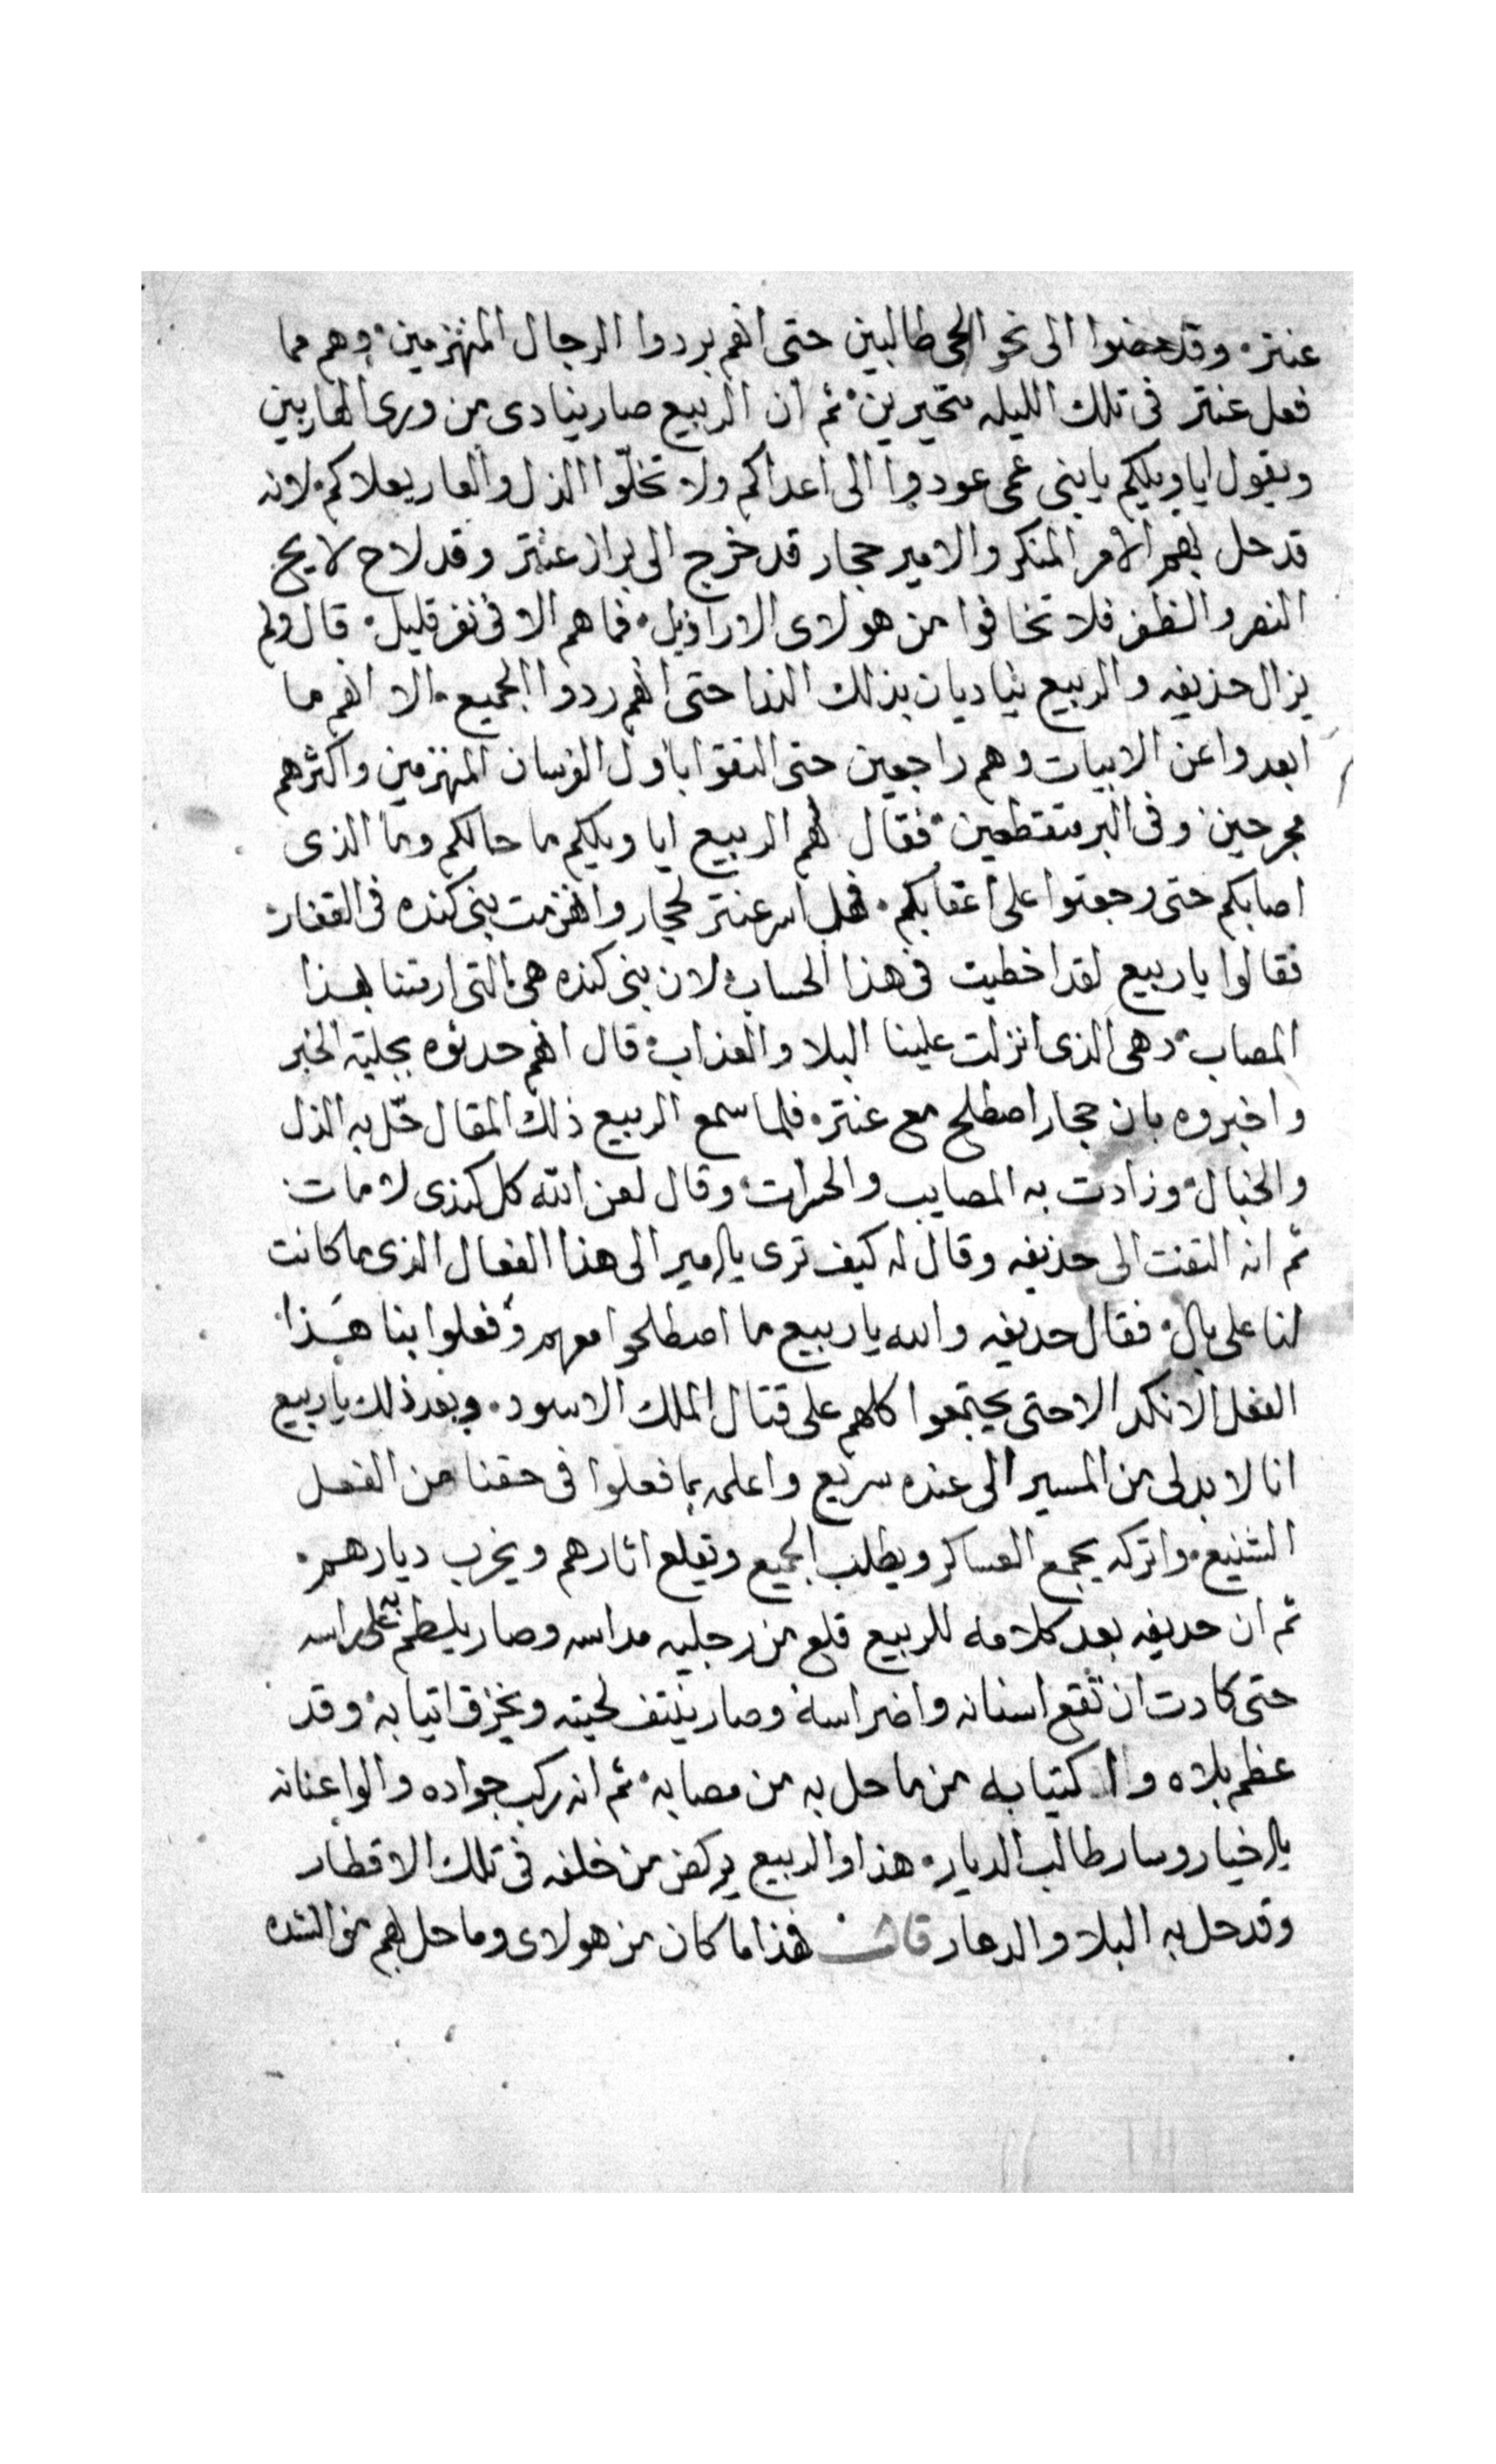 عنتر. وقد مضوا الى نحو الحى طالبين حتى انهم يردوا الرجال المنهزمين. وهم مما
فعل عنتر فى تلك الليله متحيرين. ثم ان الربيع صار ينادى من ورى الهاربين
ويقول ايا ويلكم يا بنى عمى عودوا الى اعداكم ولا تخلّوا الذل والعار يعلاكم. لانه
قد حل بهم الامر المنكر والامير حجار قد خرج الى براز عنتر وقد لاح لا يح
النصر والظفر فلا تخافوا من هولاى الاراذيل. فما هم الا فى نفر قليل. قال ولم
يزال حذيفه والربيع يناديان بذلك الندا حتى انهم ردوا الجميع. الا انهم ما
ابعدوا عن الابيات وهم راجعين حتى التقوا باول الفرسان المنهزمين واكثرهم
مجرحين وفى البر متقطعين. فقال لهم الربيع ايا ويلكم ما حالكم وما الذى
اصابكم حتى رجعتوا على اعقابكم. فهل اسر عنتر لحجار وانهزمت بنى كنده فى القفار
فقالوا يا ربيع لقد اخطيت فى هذا الحساب لان بنى كنده هى التى ارمتنا بهذا
المصاب. وهى الذى انزلت علينا البلا والعذاب. قال انهم حدثوه بجلية الخبر
واخبروه بان حجار اصطلح مع عنتر. فلما سمع الربيع ذلك المقال حّل به الذل
والخبال. وزادت به المصايب والحسرات. وقال لعن الله كل كندى لا مات
ثم انه التفت الى حذيفه وقال له كيف ترى يالامير الى هذا الفعال الذى ما كانت
لنا على بال. فقال حديفه والله يا ربيع ما اصطلحوا معهم وفعلوا بنا هذا
الفعل الانكد الا حتى يجتمعوا كلهم على قتال الملك الاسود. وبعد ذلك يا ربيع
انا لا بد لى من المسير الى عنده سريع واعلمه بما فعلوا فى حقنا من الفعل
الشنيع. واتركه يجمع العساكر ويطلب الجميع ويقلع اثارهم ويخرب ديارهم.
ثم ان حديفه بعد كلامه للربيع قلع من رجليه مداسه وصار يلطم به على راسه
حتى كادت ان تقع اسنانه واضراسه وصار ينتف لحيته ويخزق اتيابه. وقد
عظم بلاه واكتيابه من ما حل به من مصابه. ثم انه ركب جواده والوا عنانه
يالاخيار وسار طالب الديار. هذا والربيع يركض من خلفه فى تلك الاقطار
وقد حل به البلا والدمار قال فهذا ما كان من هولاى وما حل بهم من الشده